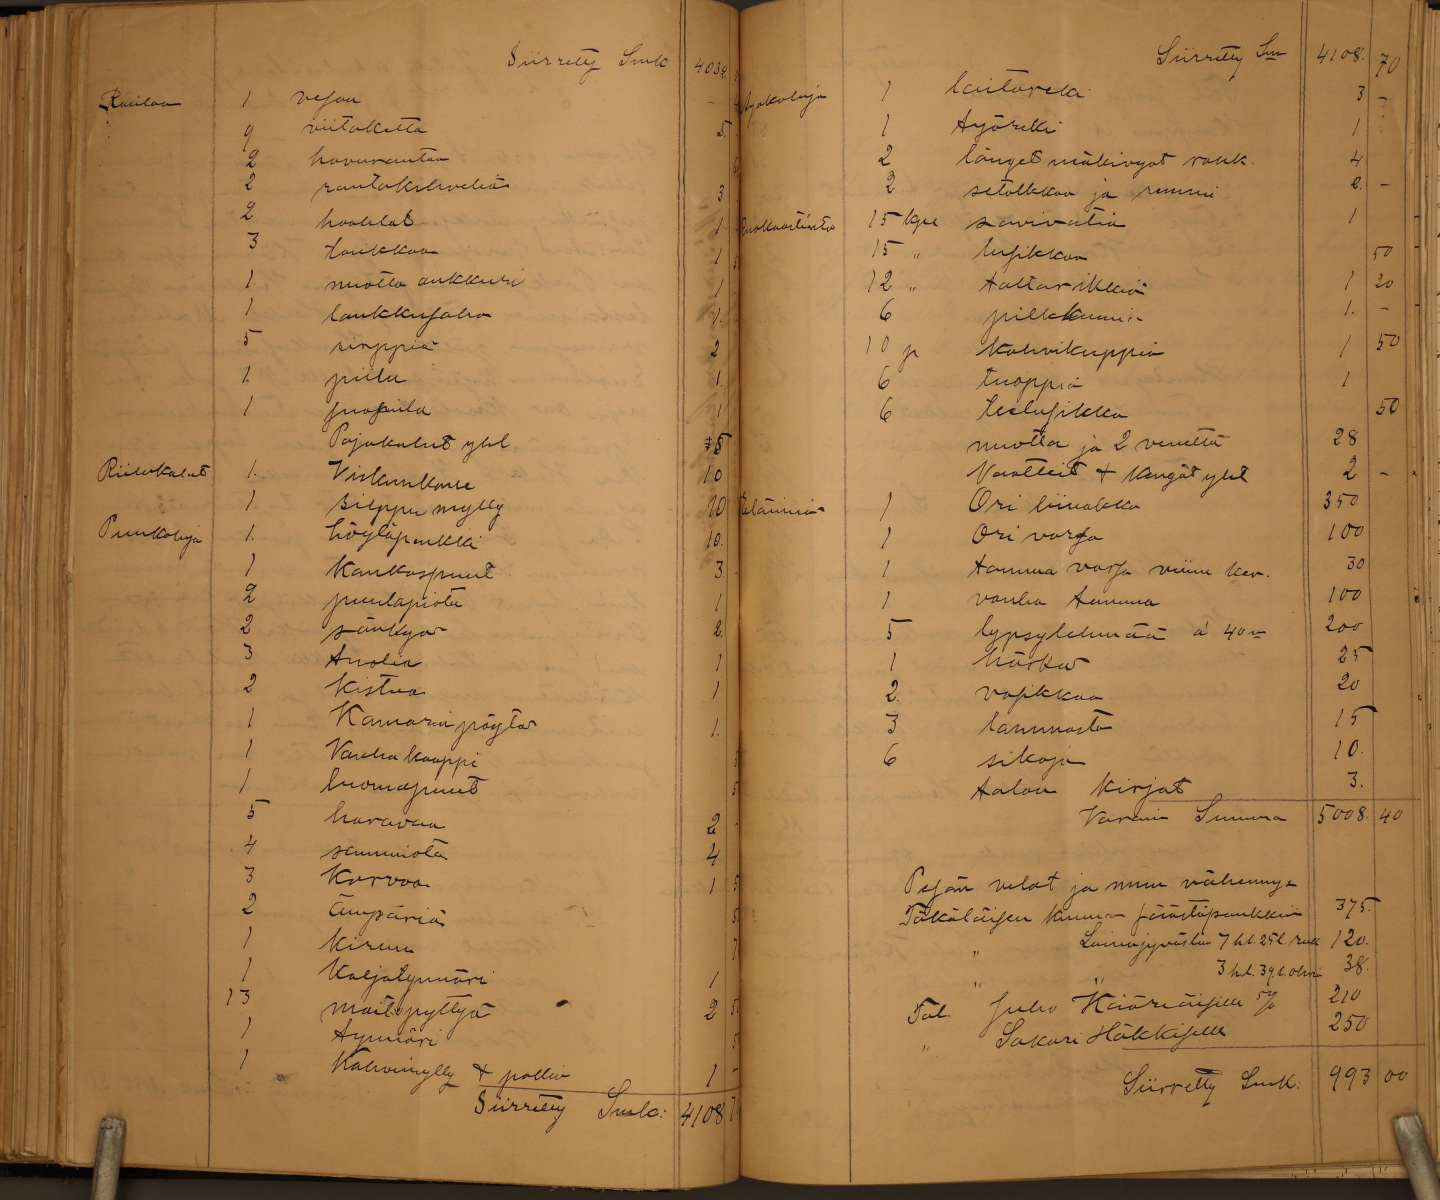 Siirretty Smk 4032
Rautaa 1 vejou
9 viitaketta 5
2 havurautaa
2 rautakihveliä 3
2 haahlat 1
3 taukkoa 1
1. nuotta ankkuri 1
1 laukkusaha 1.
5 sirppiä 2
1. piilu 1.
1 1
Pajakalut yht 5
Riihikalut 1. Viskurikone 10
1. Silppumylly 10
Puukaluja 1. höyläpenkki 10.
1 Kankaspuut 3
2 puulapiota 1
2 sänkyä 2.
3 tuolia 1
2 Kistua 1
1 Kamarin pöytä 1.
1 Vanha kaappi
1 luomapuut
5 haravaa 2
4 sammiota 4
3 Korvoa 1
2 ämpäriä
1 kirnu
1 Kaljatynnöri 1
13 maitopyttyä 2 50
1 tynnöri
1 Kahvimylly & pallia 1
Siirretty Smk: 4108 7
Siirretty Sm 4108. 70
Ajokaluja 1 laitareki 3 -
1 työreki 1
2 länget mäkivyöt rank. 4
2 setolkkaa ja rummi 2. -
Ruokaastioita 15 kpl savivatia 1
15 " lusikkaa 50
12 " taltarikkiä 1 20
6 pilkkumia 1. -
10 p Kahvikuppia 1 50
6 tuoppia 1
6 teelusikka 50
nuotta ja 2 venettä 28
Vaatteet & Kengät yht 2 -
Eläimiä 1 Ori liinakko 350
1 Ori varsa 100
1 tamma varsa viime kev. 30
1 vanha tamma 100
5 lypsylehmää á 40 m 200
1 härkä 25
2. vasikkaa 20
3 lammasta 15
6 sikoja 10.
talon Kirjat 3.
Varain Summa 5008. 40
Pesän velat ja muu vähennys
Täkäläisen kunnan säästöpankkiin 375.
" Lainajyvästöön 7 hl. 25 l. ruk 120.
" " 3 hl. 39 l. ohria 38.
Tal. Juho Kääriäiselle 5% 210
" Sakari Häkkiselle 250
Siirretty Smk: 993 00